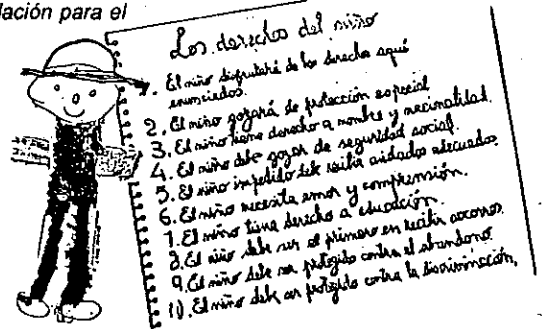 lación para el
Los derechos del niño
1. El niño disfrutará de los derechos aquí
enunciados.
2. El niño gozará de protección especial
3. El niño tiene derecho a nombre y nacionalidad.
4. El niño debe gozar de seguridad social.
5. El niño impedido debe recibir cuidados adecuados
6. El niño necesita amor y comprensión.
7. El niño tiene derecho a educación.
8. El niño debe ser el primero en recibir socorros.
9. El niño debe ser protegido contra el abandono
10. El niño debe ser protegido contra la discriminación.